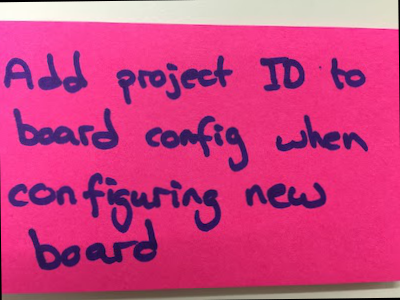 Add project ID to
board config when
configuring new
board